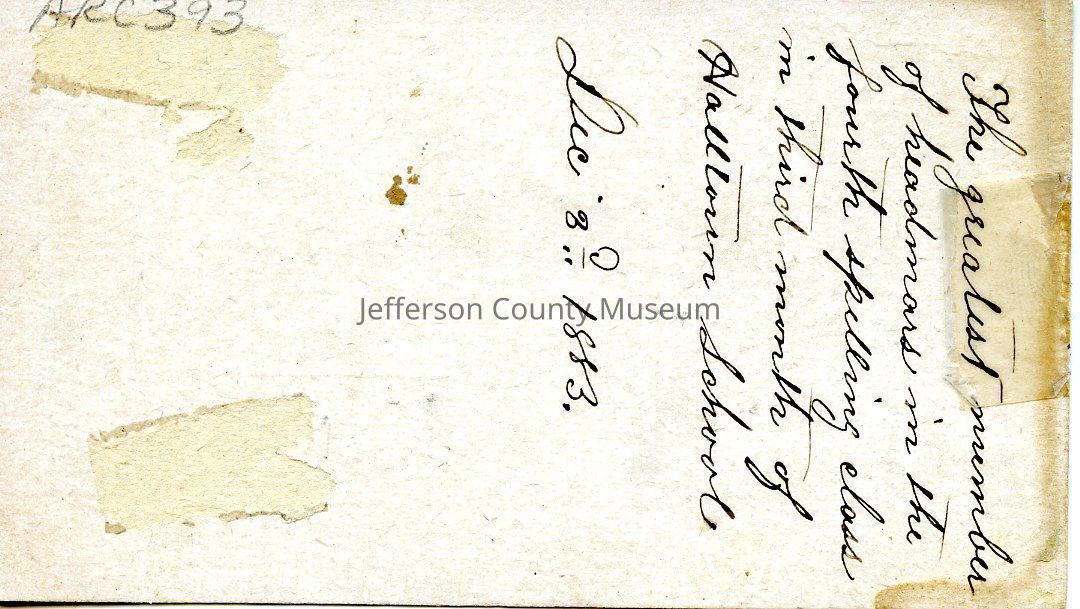 ARC393
The greatest number
of headmars in the
fourth spelling class
in third month of
Halltown School.
Dec. 3d 1883.
Jefferson County Museum